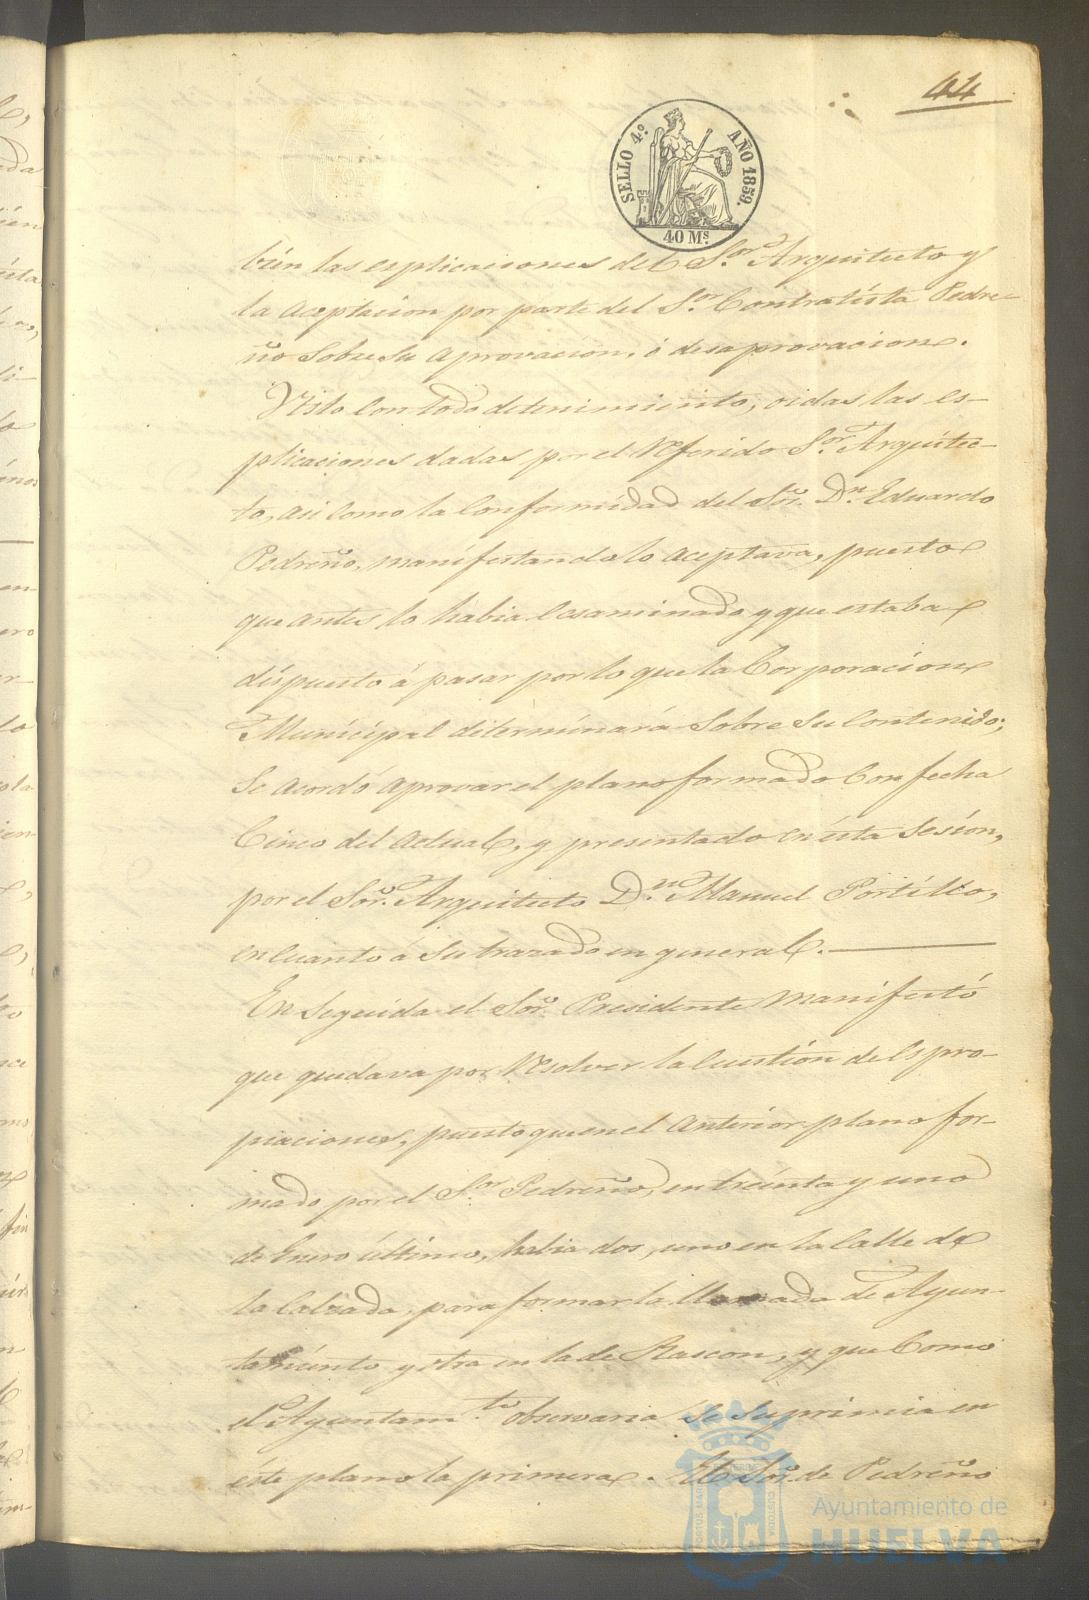 44
SELLO 4.º AÑO 1859.
40 Ms.
bien las esplicaciones del Sor. Arquitecto y
la Aceptacion por parte del Sor. Contratista Pedre-
ño sobre su aprovacion, ó desaprovacion.
Visto con todo detenimiento, oidas las es-
plicaciones dadas por el Referido Sor. Arquitec-
to, asi como la Conformidad del Sor. Dn. Eduardo
Pedreño, manifestando lo aceptava, puesto
que antes lo habia ecsaminado y que estaba
dispuesto á pasar por lo que la Corporacion
Municipal determinará sobre su Contenido;
Se acordó aprovar el plano formado Con fecha
Cinco del actual, y presentado en ésta Sesion,
por el Sor. Arquitecto Dn. Manuel Portillo,
en cuanto á su trazado en general.
En seguida el Sor. Presidente manifestó
que quedava por Resolver la Cuestion de Espro-
piaciones, puesto que en el Anterior plano for-
mado por el Sor. Pedreño, en treinta y uno
de Enero último, habia dos, uno en la Calle de
la Calzada, para formar la llamada de Ayun-
tamiento y otra en la de Rascon, y que Como
el Ayuntamto. observaria se suprimia en
éste plano la primera. El Sor. de Pedreño
Ayuntamiento de
HUELVA